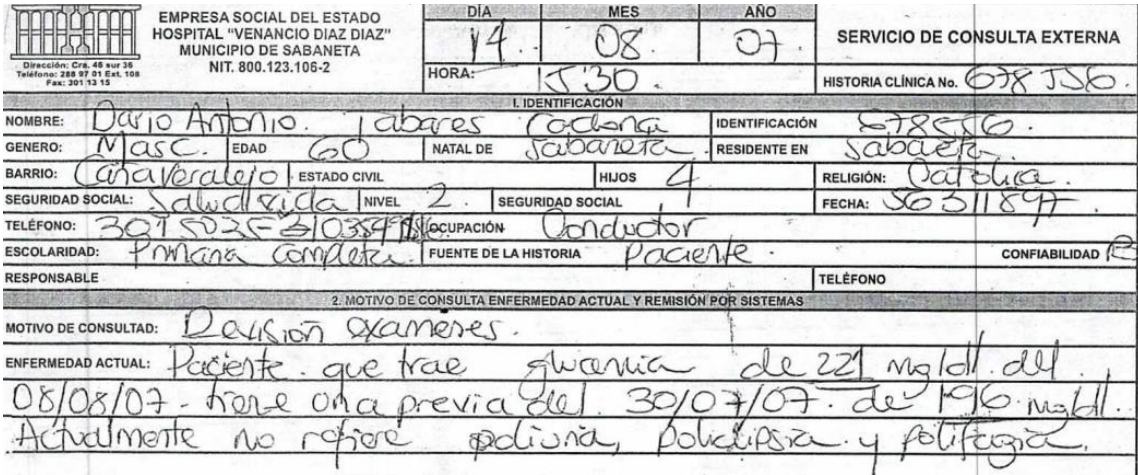 EMPRESA SOCIAL DEL ESTADO
HOSPITAL "VENANCIO DIAZ DIAZ"
MUNICIPIO DE SABANETA
NIT. 800.123.106-2
Dirección: Cra. 46 sur 36
Teléfono: 288 97 01 Ext. 108
Fax: 301 13 15
DÍA MES AÑO
14 08 07
HORA: 15:30
SERVICIO DE CONSULTA EXTERNA
HISTORIA CLÍNICA No. 678556
I. IDENTIFICACIÓN
NOMBRE: Dario Antonio Tabares Cardona IDENTIFICACIÓN 678556
GENERO: Masc. EDAD 60 NATAL DE Sabaneta RESIDENTE EN Sabaneta
BARRIO: Cañaveralejo ESTADO CIVIL HIJOS 4 RELIGIÓN: Catolica
SEGURIDAD SOCIAL: NIVEL 2 SEGURIDAD SOCIAL FECHA:
TELÉFONO: OCUPACIÓN Conductor
ESCOLARIDAD: Primaria completa FUENTE DE LA HISTORIA Paciente CONFIABILIDAD
RESPONSABLE TELÉFONO
2. MOTIVO DE CONSULTA ENFERMEDAD ACTUAL Y REMISIÓN POR SISTEMAS
MOTIVO DE CONSULTAD: Revisión examenes.
ENFERMEDAD ACTUAL: Paciente que trae glucemia de 221 mg/dl del
08/08/07 - tiene una previa del 30/07/07 de 196 mg/dl.
Actualmente no refiere poliuria, polidipsia y polifagia.